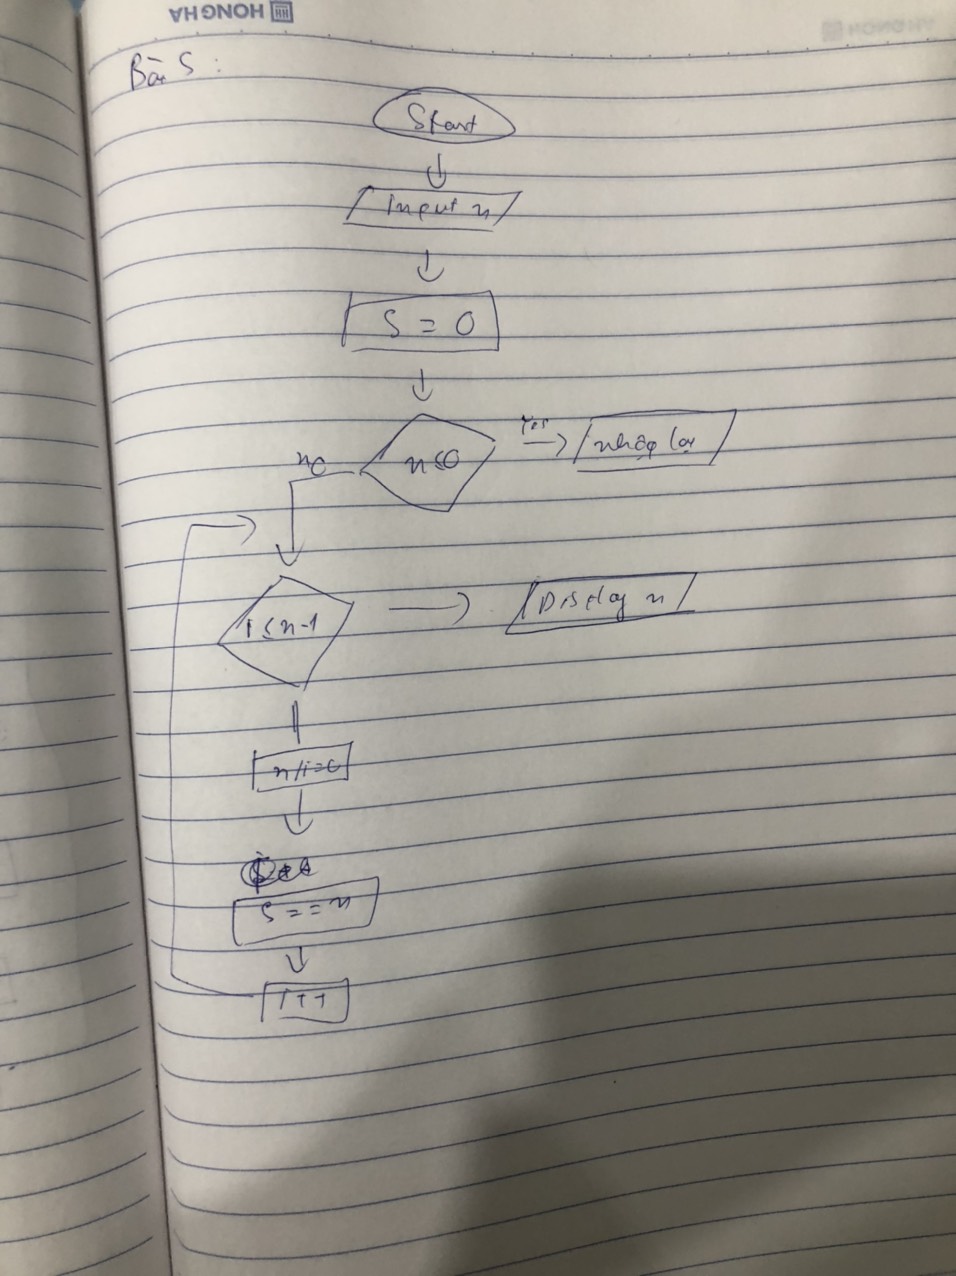 HONG HA
Bài 5:
Start
Input n
S = 0
n ≤ 0
Yes
nhập lại
no
i ≤ n-1
Display n
S == n
i++